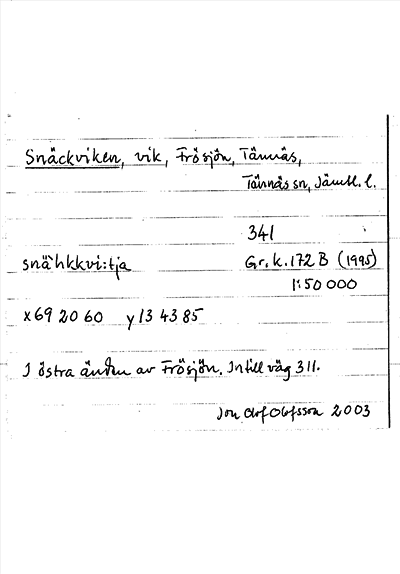 Snäckviken, vik, Frösjön, Tännäs,
Tännäs sn, Jämtl. l.
341
snähkkvi:tja Gr.k. 172 B (1995)
1:50 000
x 69 20 60 y 13 43 85
I östra änden av Frösjön. Intill väg 311.
Jon Olof Olofsson 2003